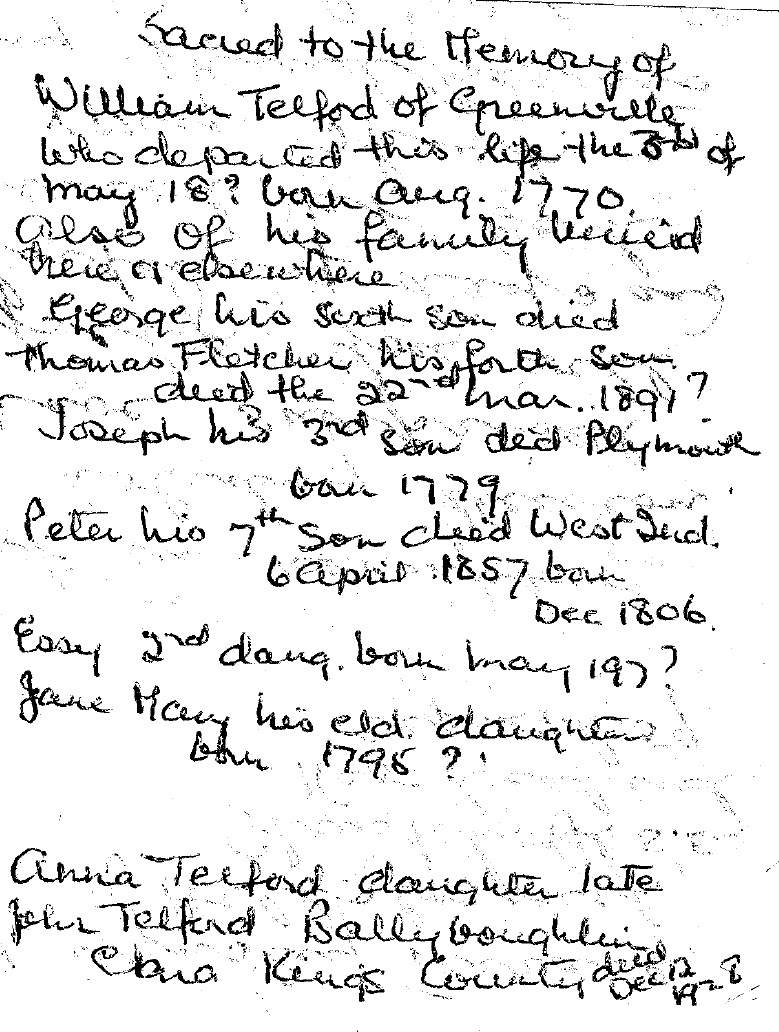 Sacred to the Memory of
William Telford of Greenville
who departed this life the 3rd of
May 18? born Aug. 1770.
Also of his family buried
here or elsewhere
George his sixth son died
Thomas Fletcher his forth son
died the 22nd Mar. 1891?
Joseph his 3rd son died Plymouth
born 1779
Peter his 7th Son died West Ind.
6 April 1857 born
Dec 1806.
Essy 2nd daug. born May 197?
Jane Mary his eld. daughter
born 1795 ?
Anna Telford daughter late
John Telford Ballyboughlin
Clara Kings County died
Dec 12